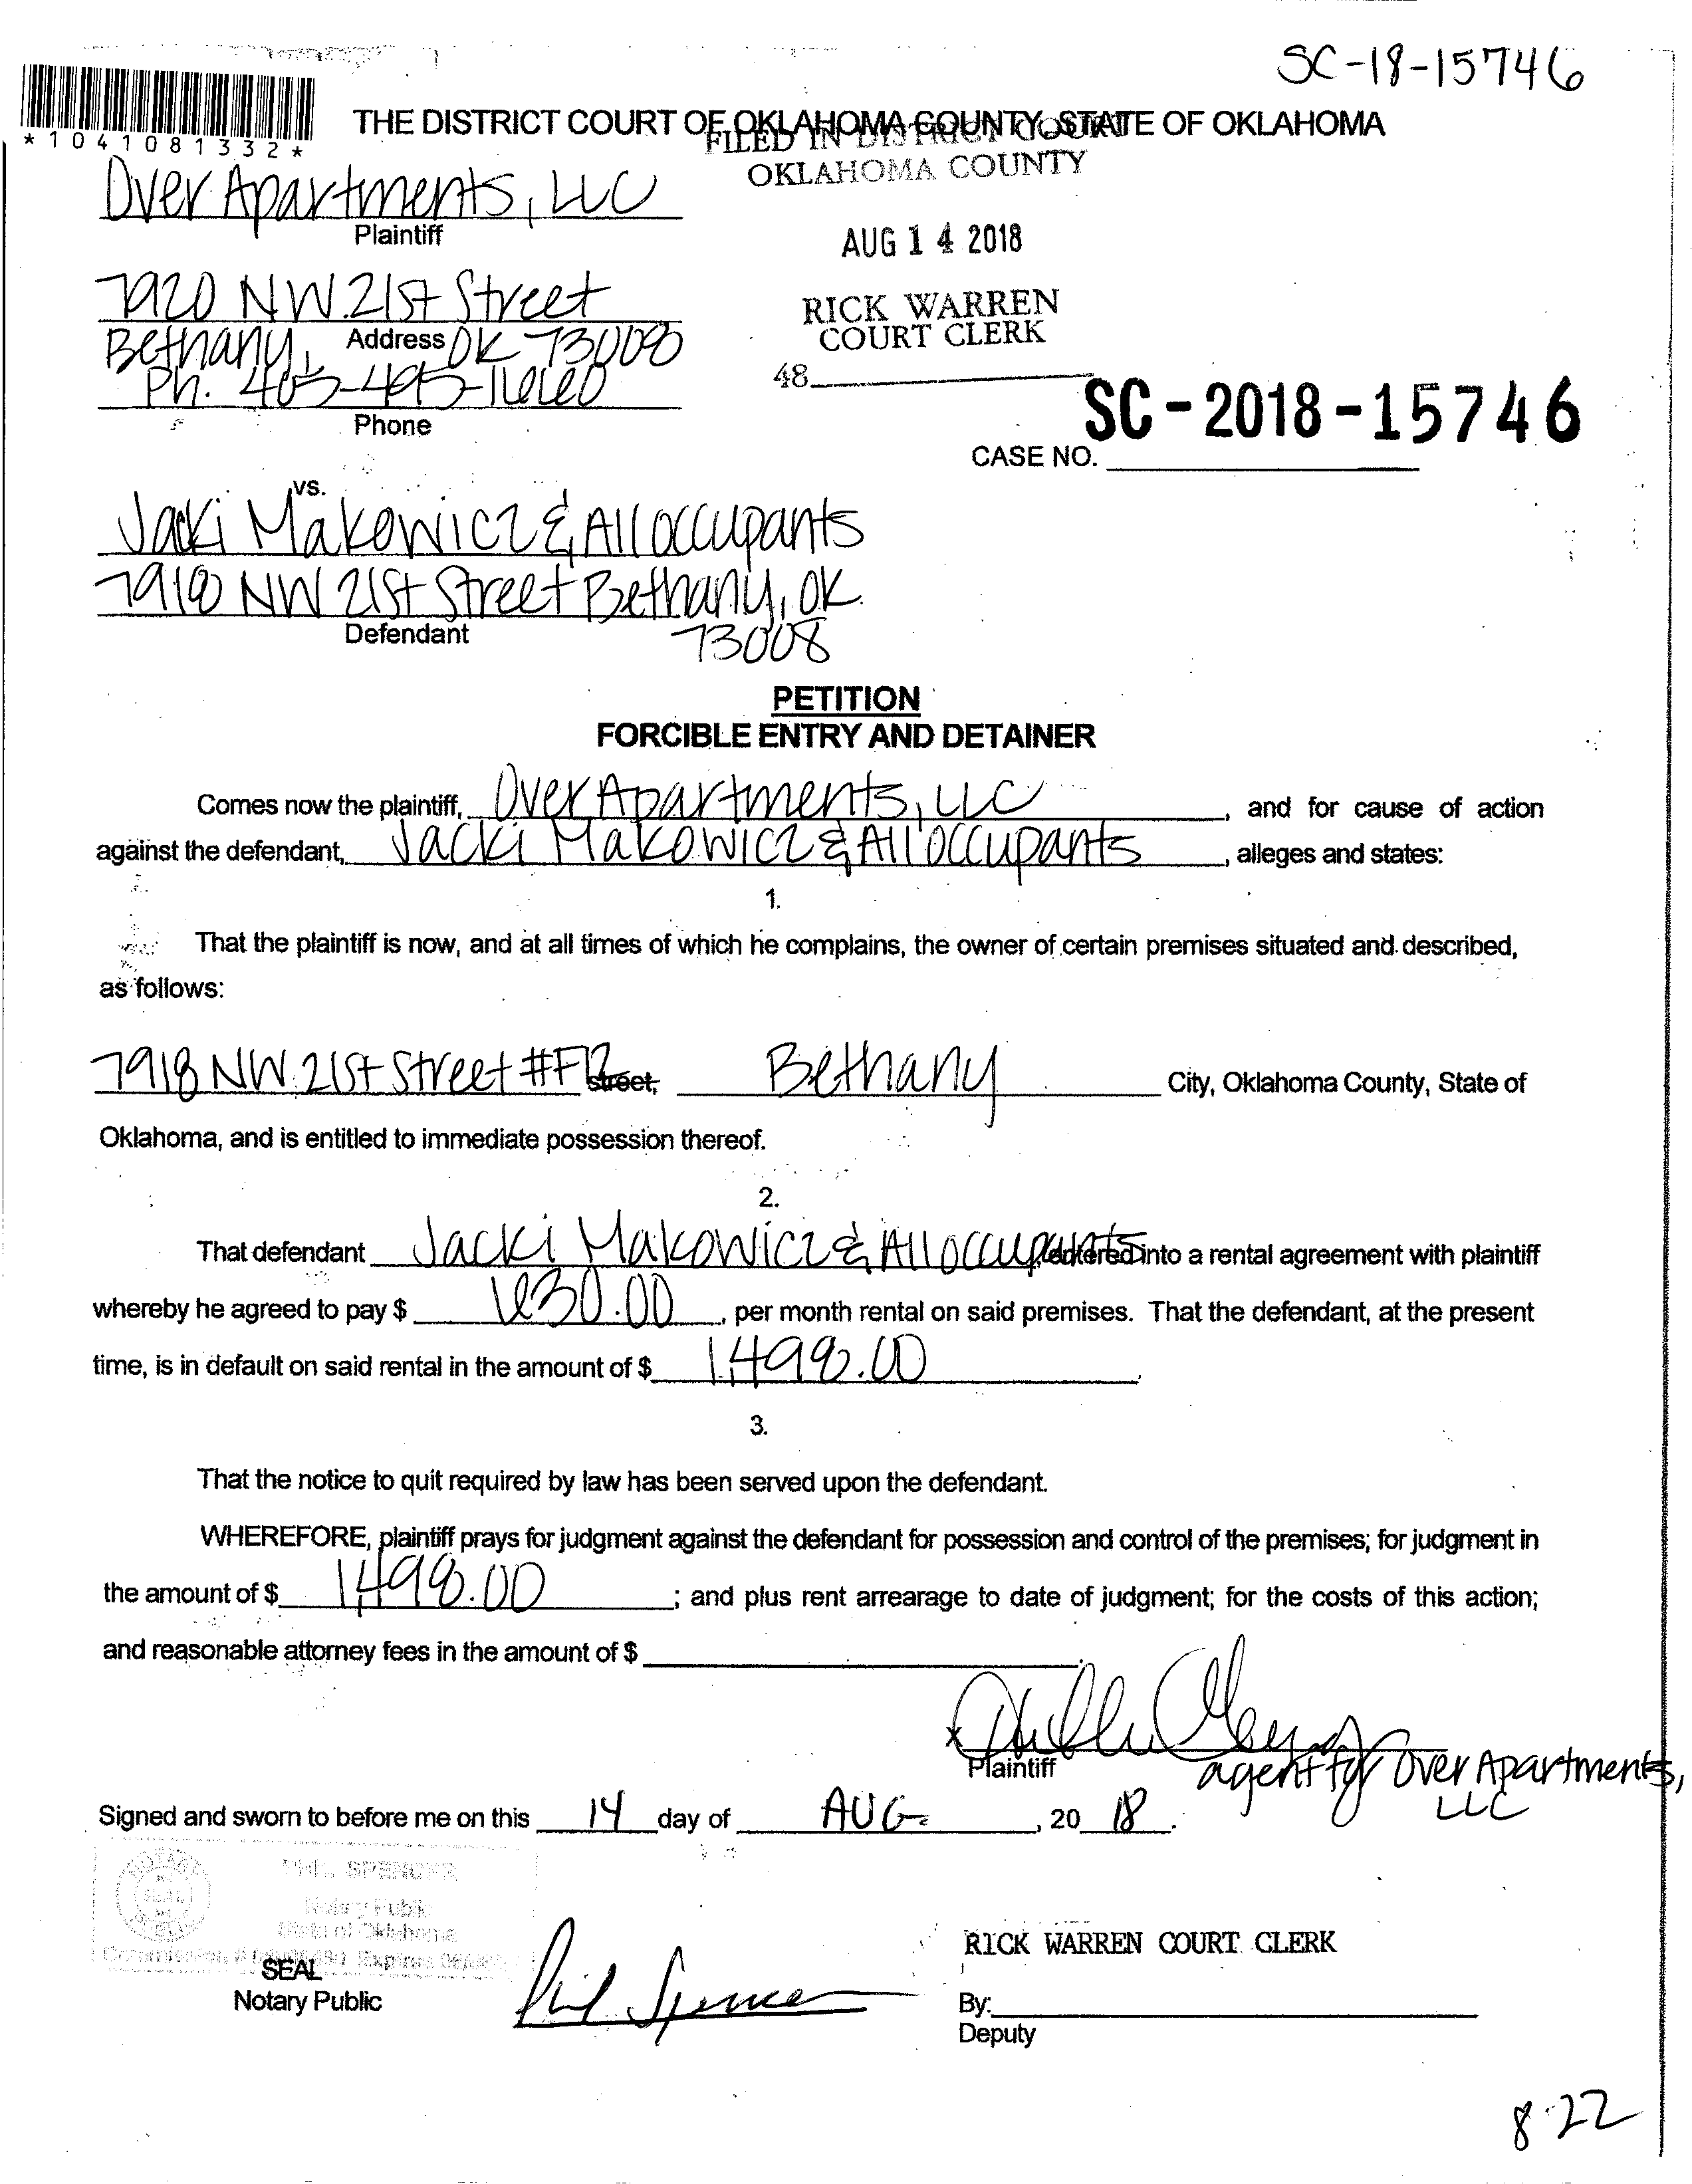 SC-18-15746
*1041081332*
THE DISTRICT COURT OF OKLAHOMA COUNTY, STATE OF OKLAHOMA
FILED IN DISTRICT COURT
OKLAHOMA COUNTY
Over Apartments, LLC
Plaintiff
AUG 14 2018
7920 NW 21st Street
RICK WARREN
COURT CLERK
Bethany, OK 73008
Address
48
Ph. 405-495-1660
Phone
SC-2018-15746
CASE NO.
vs.
Jacki Makowicz & All occupants
7918 NW 21st Street Bethany, OK
73008
Defendant
PETITION
FORCIBLE ENTRY AND DETAINER
Comes now the plaintiff, Over Apartments, LLC, and for cause of action
against the defendant, Jacki Makowicz & All occupants, alleges and states:
1.
That the plaintiff is now, and at all times of which he complains, the owner of certain premises situated and described,
as follows:
7918 NW 21st Street #F12 street, Bethany City, Oklahoma County, State of
Oklahoma, and is entitled to immediate possession thereof.
2.
That defendant Jacki Makowicz & All occupants, entered into a rental agreement with plaintiff
whereby he agreed to pay $ 630.00, per month rental on said premises. That the defendant, at the present
time, is in default on said rental in the amount of $ 1,498.00.
3.
That the notice to quit required by law has been served upon the defendant.
WHEREFORE, plaintiff prays for judgment against the defendant for possession and control of the premises; for judgment in
the amount of $ 1,498.00; and plus rent arrearage to date of judgment; for the costs of this action;
and reasonable attorney fees in the amount of $
x
Plaintiff
agent for Over Apartments,
LLC
Signed and sworn to before me on this 14 day of AUG., 20 18.
PHIL SPENCER
Notary Public
State of Oklahoma
SEAL
Notary Public
Phil Spencer
RICK WARREN COURT CLERK
By:
Deputy
8-22